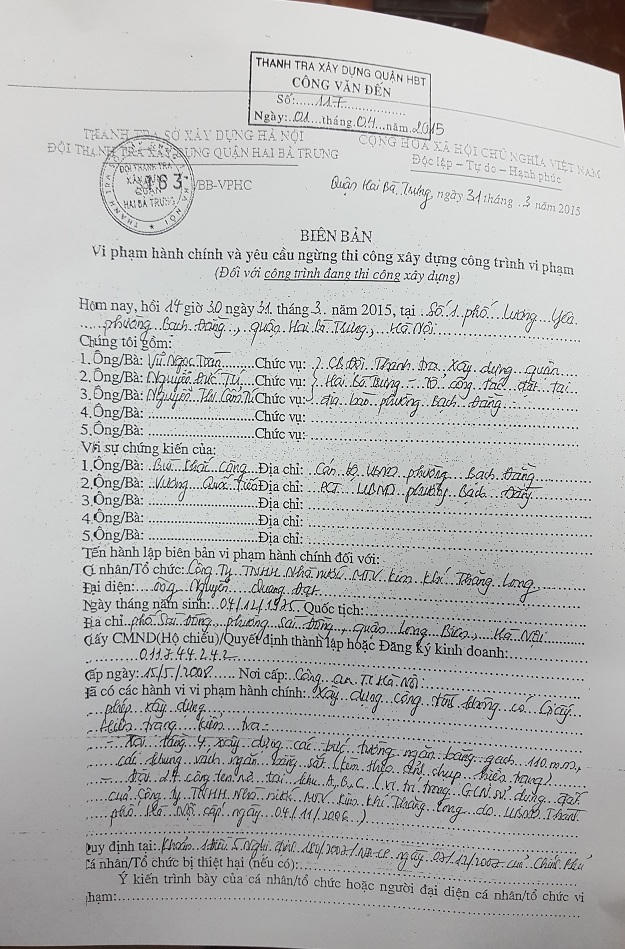 THANH TRA XÂY DỰNG QUẬN HBT
CÔNG VĂN ĐẾN
Số:......117................
Ngày:..01...tháng.04...năm.2015
THANH TRA SỞ XÂY DỰNG HÀ NỘI
ĐỘI THANH TRA XÂY DỰNG QUẬN HAI BÀ TRƯNG
CỘNG HÒA XÃ HỘI CHỦ NGHĨA VIỆT NAM
Độc lập – Tự do – Hạnh phúc
ĐỘI THANH TRA
XÂY DỰNG
QUẬN
HAI BÀ TRƯNG
163/BB-VPHC
Quận Hai Bà Trưng, ngày 31 tháng .3 năm 2015
BIÊN BẢN
Vi phạm hành chính và yêu cầu ngừng thi công xây dựng công trình vi phạm
(Đối với công trình đang thi công xây dựng)
Hôm nay, hồi 14 giờ 30 ngày 31. tháng 3. năm 2015, tại ..Số 1 phố Lương Yên
phường Bạch Đằng.., quận Hai Bà Trưng.., Hà Nội
Chúng tôi gồm:
1. Ông/Bà: Vũ Ngọc Trân.......Chức vụ: CB Đội Thanh Tra Xây dựng quận
2. Ông/Bà: Nguyễn Đức Tụ...Chức vụ: Hai Bà Trưng - Tổ công tác đặt tại
3. Ông/Bà: Nguyễn Thị Cẩm Tú Chức vụ: địa bàn phường Bạch Đằng
4. Ông/Bà: ..........................Chức vụ: ..........................
5. Ông/Bà: ..........................Chức vụ: ..........................
Với sự chứng kiến của:
1. Ông/Bà: Bùi Khắc Công...Địa chỉ: Cán bộ UBND phường Bạch Đằng
2. Ông/Bà: Vương Quốc Địa chỉ: PCT UBND phường Bạch Đằng
3. Ông/Bà: ..........................Địa chỉ: ..........................
4. Ông/Bà: ..........................Địa chỉ: ..........................
5. Ông/Bà: ..........................Địa chỉ: ..........................
Tến hành lập biên bản vi phạm hành chính đối với:
Cí nhân/Tổ chức: Công Ty TNHH Nhà nước MTV Kim khí Thăng Long
Đại diện:....ông Nguyễn Quang Đạt
Ngày tháng năm sinh: 04/12/1975 Quốc tịch:..........................
Địa chỉ phố Sài Đồng, phường Sài Đồng, quận Long Biên, Hà Nội
Giấy CMND(Hộ chiếu)/Quyết định thành lập hoặc Đăng ký kinh doanh:..........
..........011744242..........
Cấp ngày: 15/5/2008........ Nơi cấp: Công an TP Hà Nội
Đã có các hành vi vi phạm hành chính: Xây dựng công trình không có Giấy
phép xây dựng
Hiện trạng kiểm tra:
- Tại tầng 4 xây dựng các bức tường ngăn bằng gạch 110 mm,
các khung vách ngăn bằng sắt (kèm theo ảnh chụp hiện trạng)
tại khu A, B, C (vị trí trong GCN sử dụng đất
của Công ty TNHH Nhà nước MTV Kim khí Thăng Long do UBND Thành
phố Hà Nội cấp ngày 04/11/2006)
Quy định tại: Khoản 1 điều 5 Nghị định 180/2007/NĐ-CP ngày 07/12/2007 của Chính Phủ
Cá nhân/Tổ chức bị thiệt hại (nếu có):..........................
Ý kiến trình bày của cá nhân/tổ chức hoặc người đại diện cá nhân/tổ chức vi
phạm:..........................